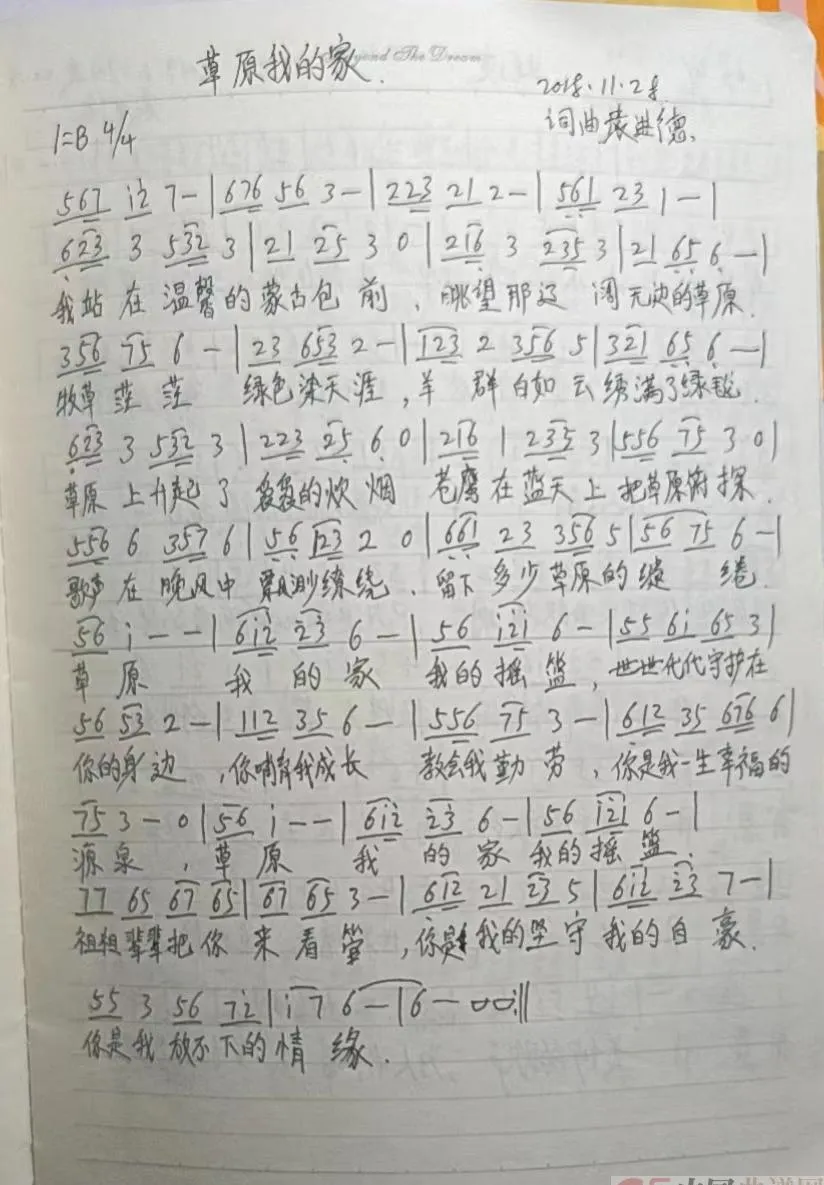 草原我的家.
Beyond The Dream
2018.11.28
词曲袁进德.
1=B 4/4
567 i2 7-|676 56 3-|223 21 2-|561 23 1-|
623 3 532 3|21 25 3 0|216 3 235 3|21 65 6-|
我站在温馨的蒙古包前,眺望那辽阔无边的草原.
356 75 6-|23 653 2-|123 2 356 5|321 65 6-|
牧草茫茫 绿色染天涯,羊群白如云绣满了绿毯.
623 3 532 3|223 25 6 0|216 1 235 3|556 75 3 0|
草原上升起了袅袅的炊烟 苍鹰在蓝天上把草原俯探.
556 6 357 6|56 123 2 0|661 23 356 5|56 75 6-|
歌声在晚风中飘渺缭绕,留下多少草原的缱绻.
56 i--|6i2 23 6-|56 i2i 6-|55 6i 65 3|
草原 我的家 我的摇篮,世世代代守护在
56 53 2-|112 35 6-|556 75 3-|612 35 676 6|
你的身边,你哺育我成长 教会我勤劳,你是我一生幸福的
75 3-0|56 i--|6i2 23 6-|56 i2i 6-|
源泉,草原 我的家 我的摇篮.
77 65 67 65|67 65 3-|612 21 23 5|6i2 23 7-|
祖祖辈辈把你来看管,你是我的坚守我的自豪.
55 3 56 7i|i7 6-|6-00:||
你是我放不下的情缘.
中国曲谱网